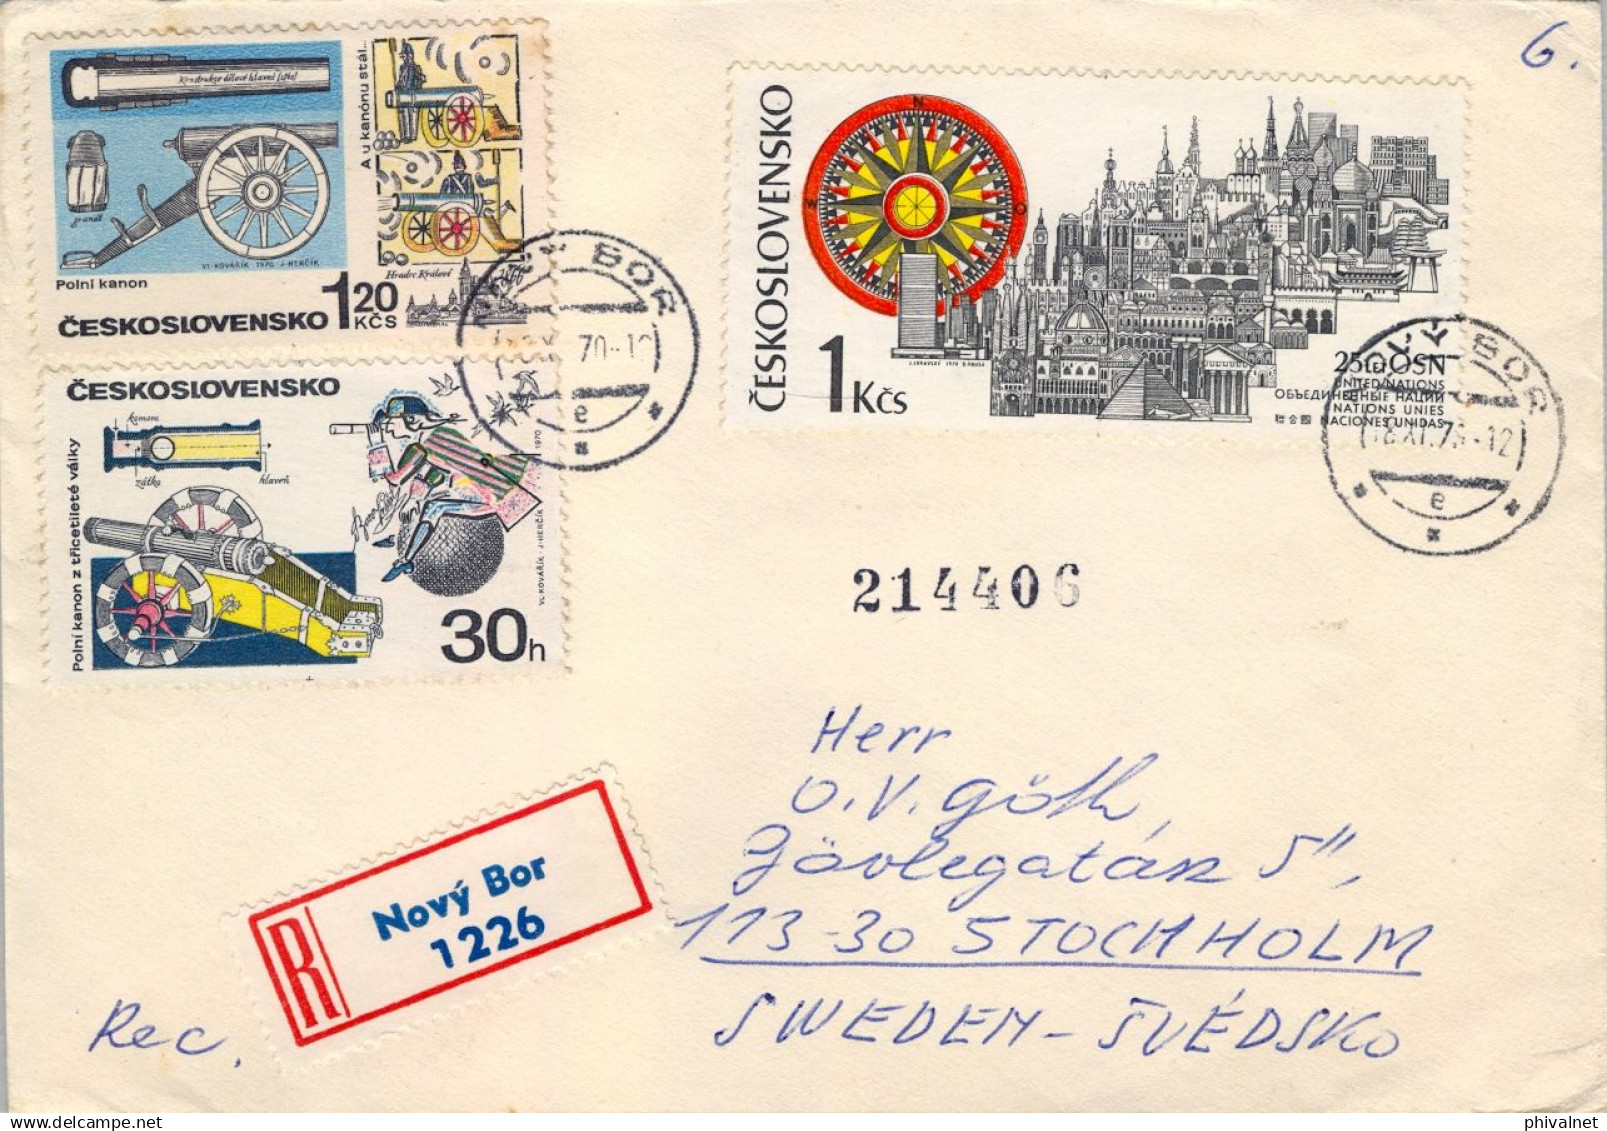 6.
Konstrukce dělové hlavně (1860)
granát
A u kanónu stál...
Hradec Králové
VL. KOVÁŘÍK · 1970 · J. HERČÍK
Polní kanon
ČESKOSLOVENSKO 1 20 KČS
ČESKOSLOVENSKO
N
W
O
1 Kčs
25 LET OSN
UNITED NATIONS
ОБЪЕДИНЕННЫЕ НАЦИИ
NATIONS UNIES
NACIONES UNIDAS
NOVÝ BOR
70-12
e
NOVÝ BOR
18.XI.70-12
e
ČESKOSLOVENSKO
komora
zátka
hlaveň
Polní kanon z třicetileté války
1970
VL. KOVÁŘÍK · J. HERČÍK
30h
214406
Herr
O.V. Göth,
Jävlegatan 5",
113-30 STOCKHOLM
SWEDEN - ŠVÉDSKO
R
Nový Bor
1226
Rec.
phivalnet